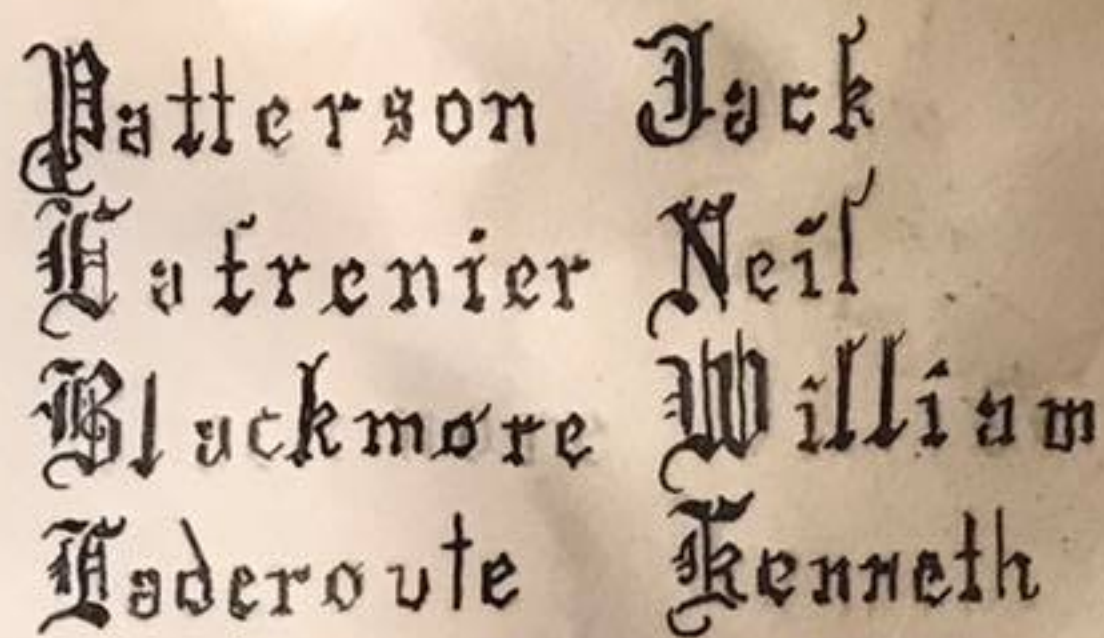 Patterson Jack
Lafrenier Neil
Blackmore William
Laderoute Kenneth